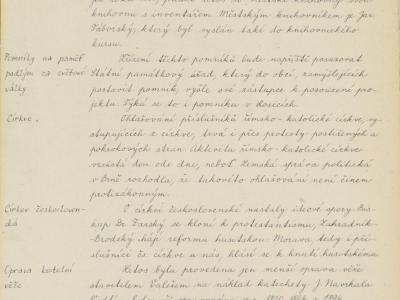 knihovnu s inventářem Městským knihovníkem p. Jar.
Táborský, který byl vyslán také do knihovnického
kursu.
Pomníky na paměť
padlým za světové
války
Řízení těchto pomníků bude napříště posuzovat
Státní památkový úřad, který do obcí, zamýšlejících
postavit pomník, vyšle své zástupce k posouzení pro-
jektu. Týká se to i pomníku v Rosicích.
Církve.
Ohlašování příslušníků římsko-katolické církve, vy-
stupujících z církve, trvá i přes protesty postižených a
pokrokových stran. Aktivita římsko-katolické církve
vzrůstá den ode dne, neboť Zemská správa politická
v Brně rozhodla, že takovéto ohlašování není činem
protizákonným.
Církev českosloven-
ská
V církvi československé nastaly ideové spory. Bis-
kup Dr. Farský se kloní k protestantismu, Zahradník-
Brodský hájí reformu husitskou. Morava, tedy i pří-
slušníci čs. církve u nás, hlásí se k hnutí husitskému.
Oprava kostelní
věže
Letos byla provedena jen menší oprava věže
stavitelem Vališem na náklad katechety J. Navrkala